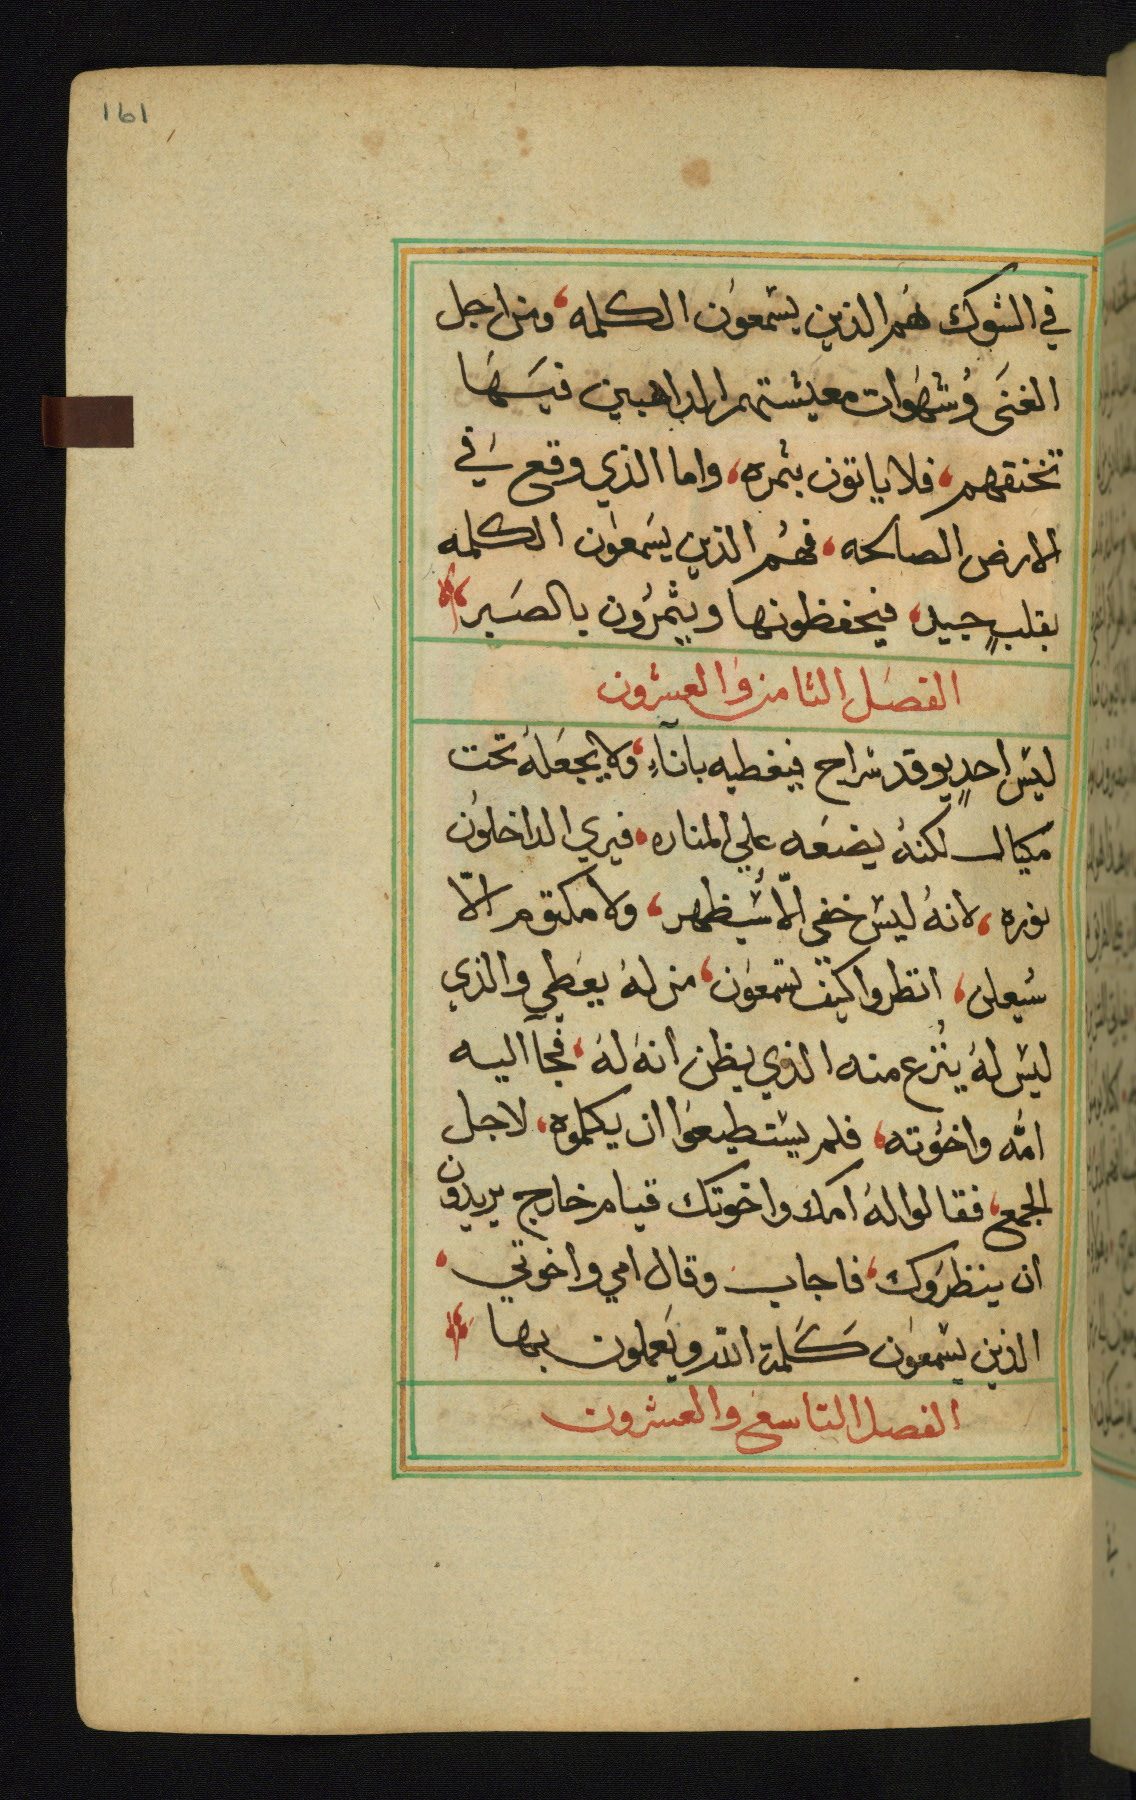 161
في الشوك هم الذين يسمعون الكلمه، ومن اجل
الغنى وشهوات معيشتهم الذاهبين فيها
تخنقهم، فلا ياتون بثمره، واما الذي وقع في
الارض الصالحه، فهم الذين يسمعون الكلمه
بقلبٍ جيد، فيحفظونها ويثمرون بالصبر
الفصل الثامن والعشرون
ليس احدٍ يوقد سراج فيغطيه باناءٍ، ولا يجعله تحت
مكيال لكنه يضعه علي المناره، فيري الداخلون
نوره، لانه ليس خفي الّا سيظهر، ولا مكتوم الّا
سيعلن، انظروا كيف تسمعون، من له يعطي والذي
ليس له ينُزع منه الذي يظن انه له، فجآ اليه
امّه واخوته، فلم يستطيعوا ان يكلموه، لاجل
الجمع، فقالوا له امك واخوتك قيام خارج يريدون
ان ينظروك، فاجاب وقال امي واخوتي،
الذين يسمعون كلمة الله ويعملون بها
الفصل التاسع والعشرون